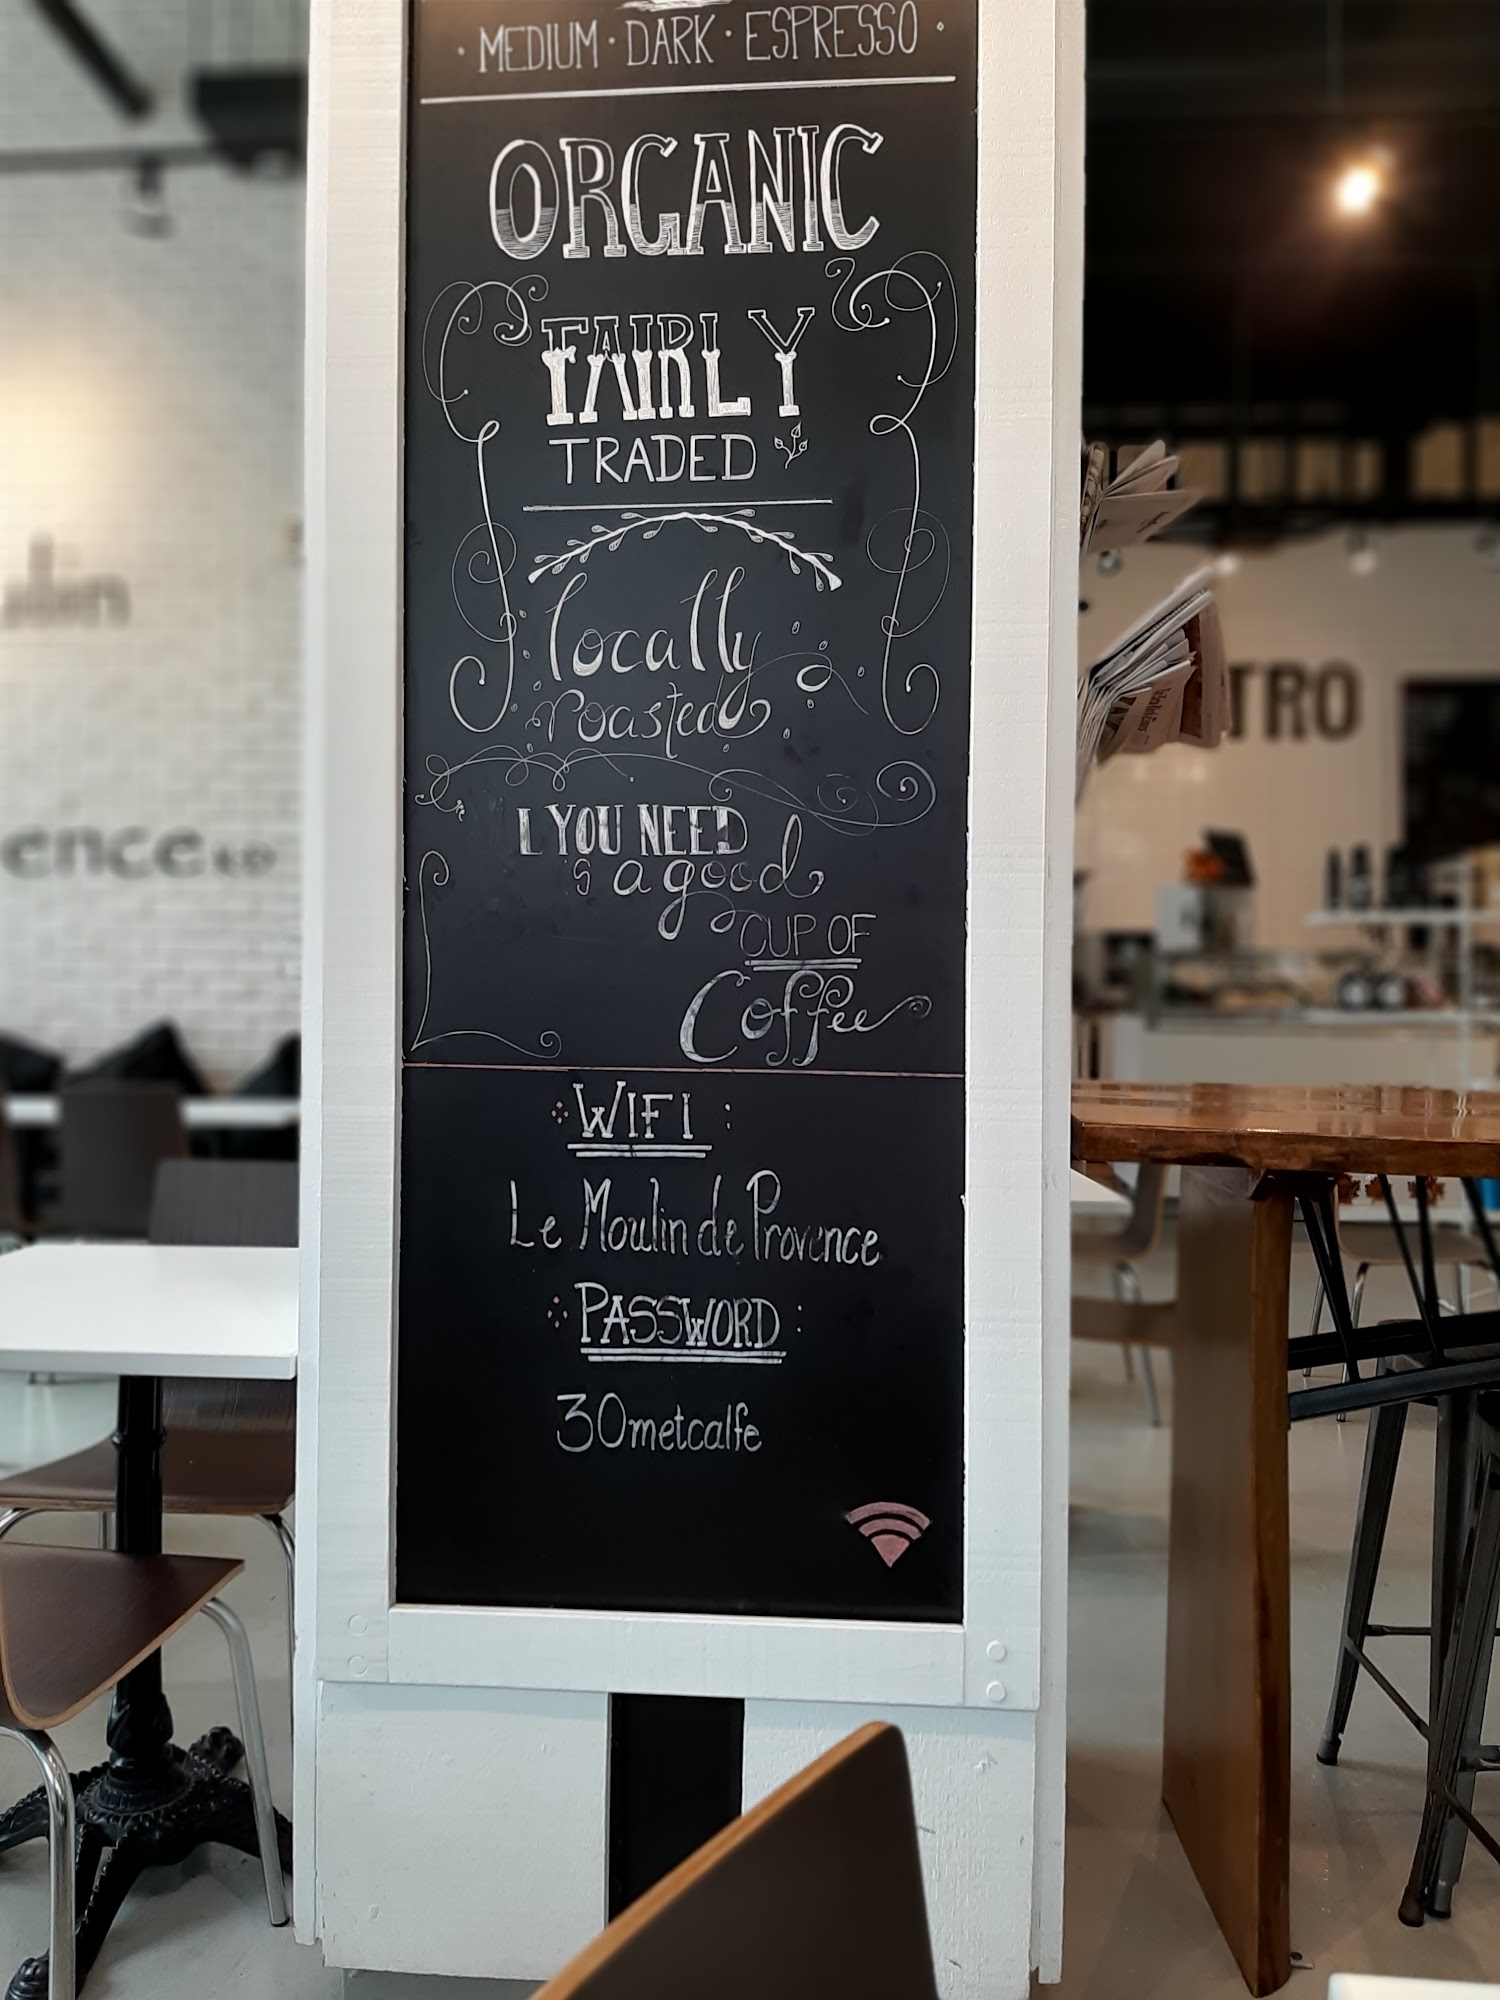 · MEDIUM · DARK · ESPRESSO ·
ORGANIC
FAIRLY
TRADED
locally
roasted
L YOU NEED
s a good
CUP OF
Coffee
WIFI :
Le Moulin de Provence
PASSWORD :
30metcalfe
TRO
ence